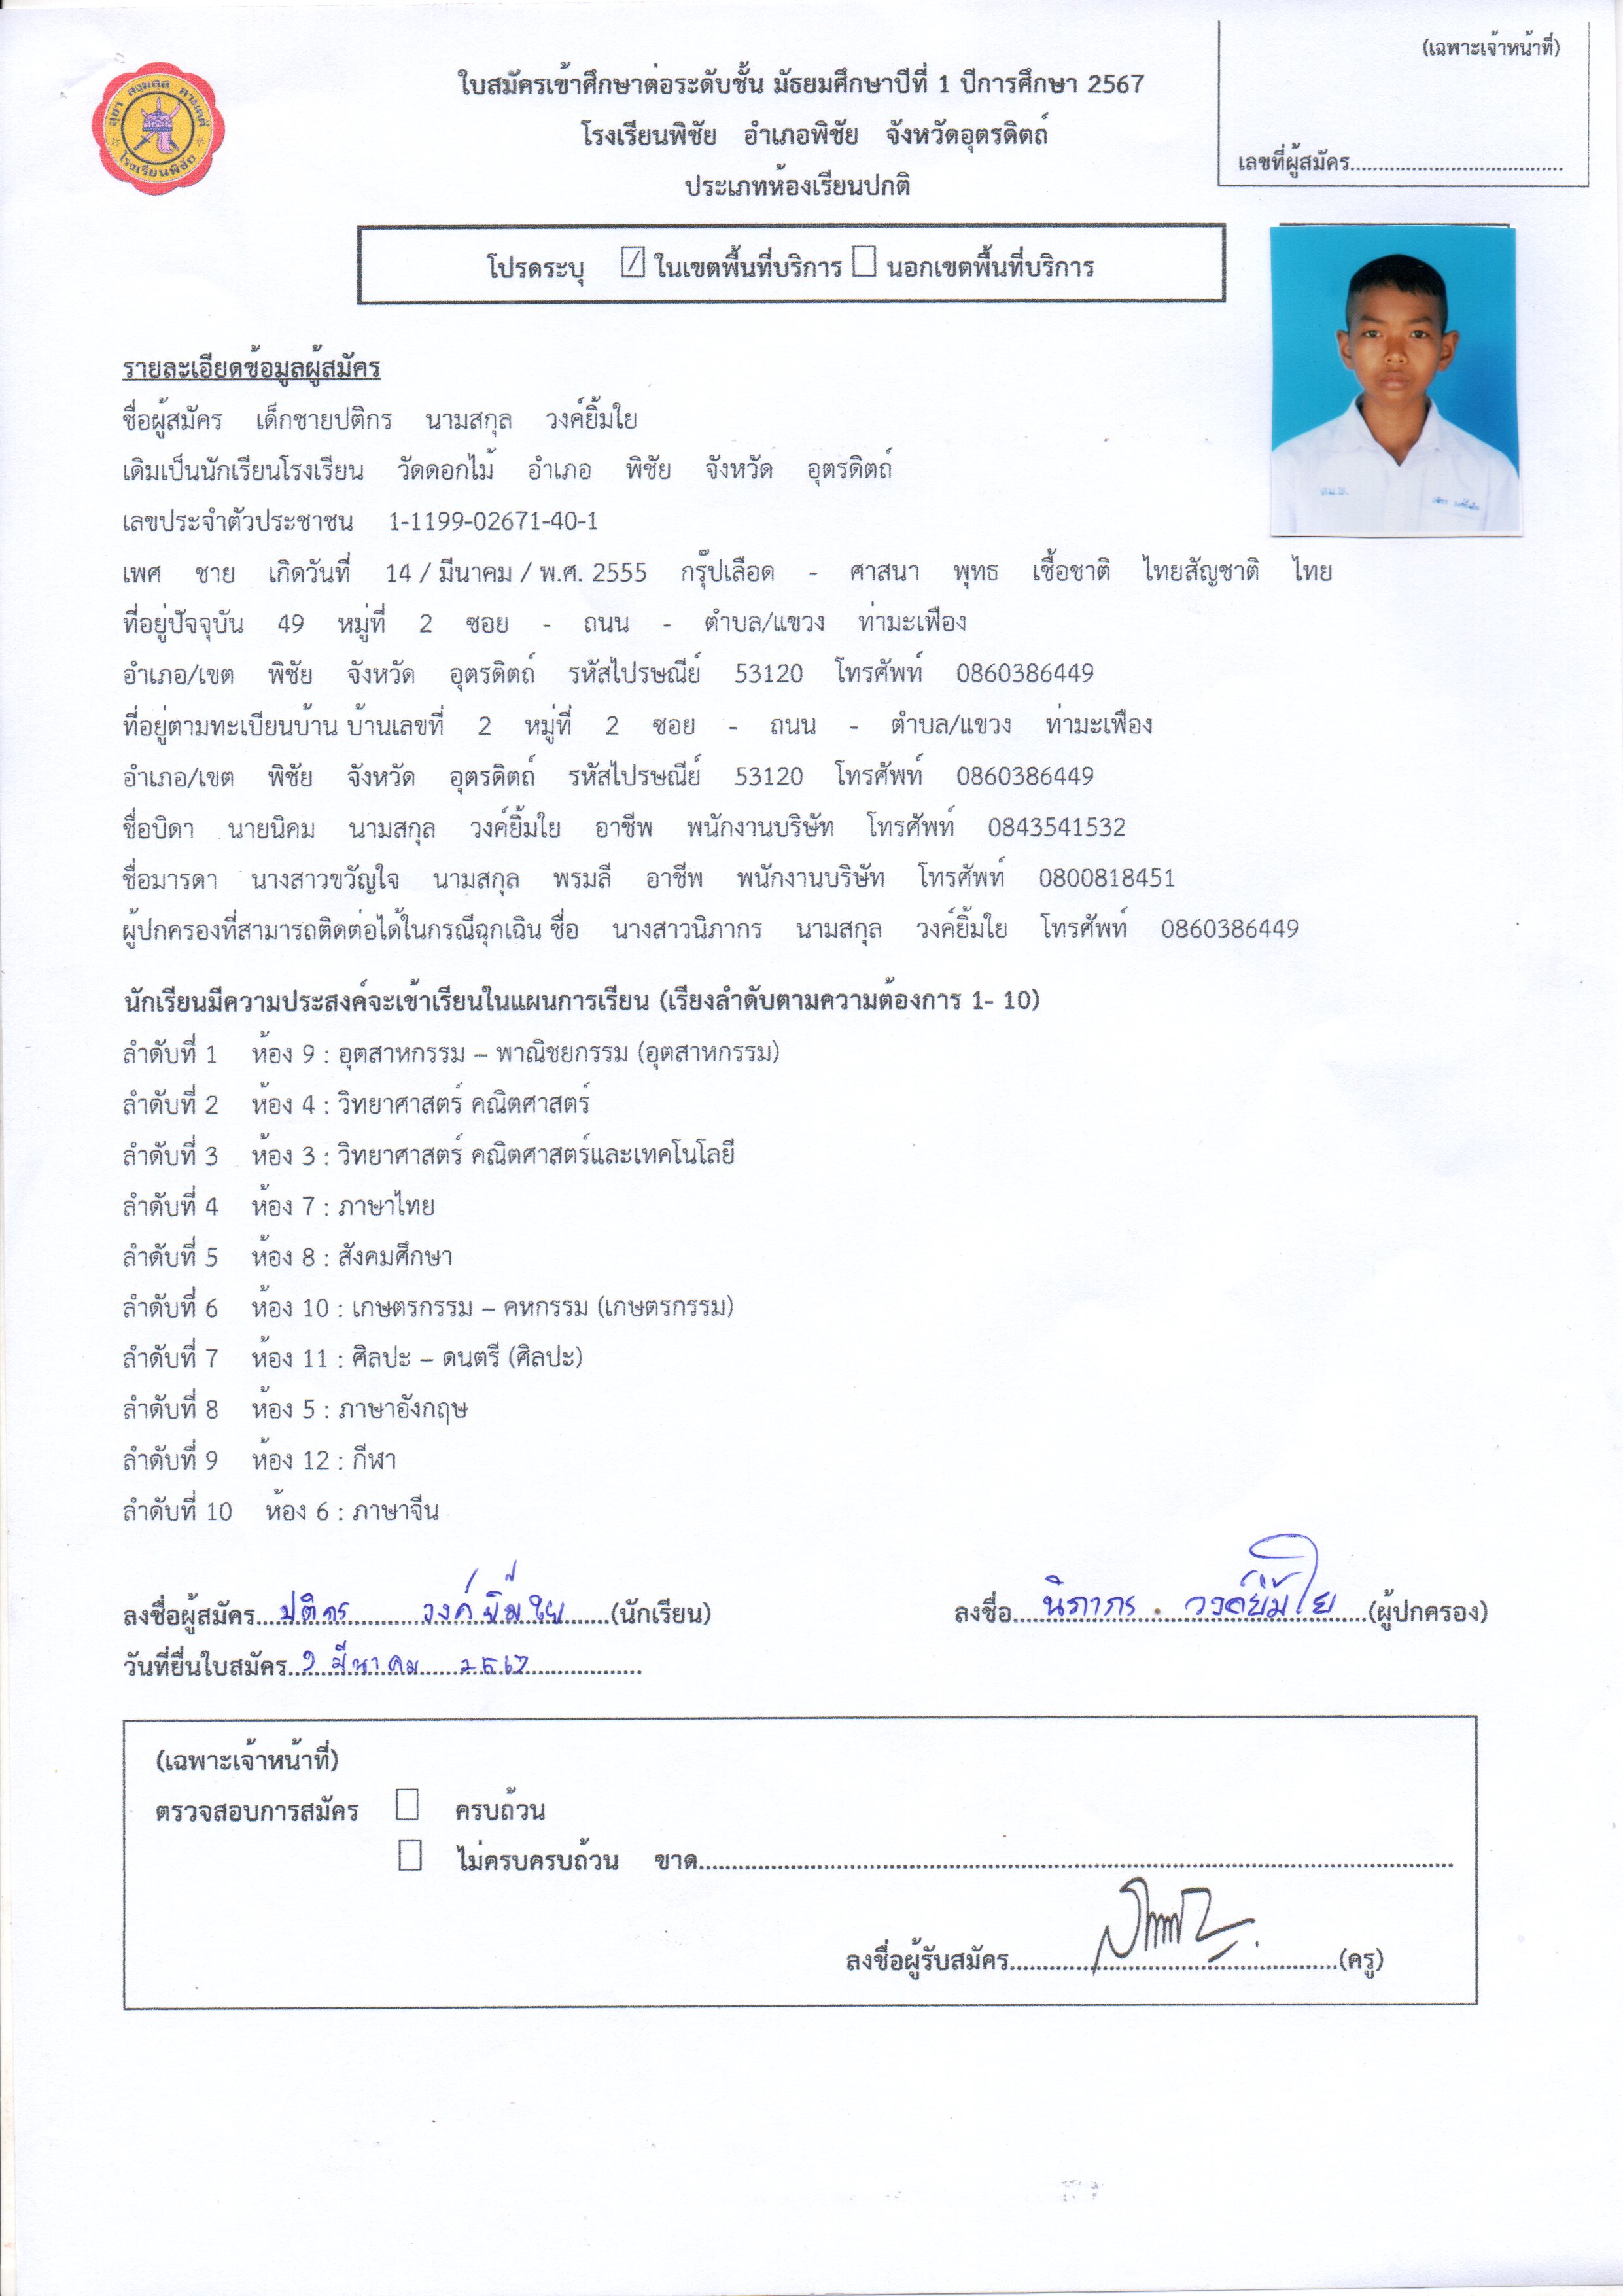 (เฉพาะเจ้าหน้าที่)
ใบสมัครเข้าศึกษาต่อระดับชั้น มัธยมศึกษาปีที่ 1 ปีการศึกษา 2567
โรงเรียนพิชัย อำเภอพิชัย จังหวัดอุตรดิตถ์
เลขที่ผู้สมัคร......................................
ประเภทห้องเรียนปกติ
โรงเรียนพิชัย
โปรดระบุ ☑ ในเขตพื้นที่บริการ ☐ นอกเขตพื้นที่บริการ
รายละเอียดข้อมูลผู้สมัคร
ชื่อผู้สมัคร เด็กชายปติกร นามสกุล วงค์ยิ้มใย
เดิมเป็นนักเรียนโรงเรียน วัดดอกไม้ อำเภอ พิชัย จังหวัด อุตรดิตถ์
เลขประจำตัวประชาชน 1-1199-02671-40-1
เพศ ชาย เกิดวันที่ 14 / มีนาคม / พ.ศ. 2555 กรุ๊ปเลือด - ศาสนา พุทธ เชื้อชาติ ไทยสัญชาติ ไทย
ที่อยู่ปัจจุบัน 49 หมู่ที่ 2 ซอย - ถนน - ตำบล/แขวง ท่ามะเฟือง
อำเภอ/เขต พิชัย จังหวัด อุตรดิตถ์ รหัสไปรษณีย์ 53120 โทรศัพท์ 0860386449
ที่อยู่ตามทะเบียนบ้าน บ้านเลขที่ 2 หมู่ที่ 2 ซอย - ถนน - ตำบล/แขวง ท่ามะเฟือง
อำเภอ/เขต พิชัย จังหวัด อุตรดิตถ์ รหัสไปรษณีย์ 53120 โทรศัพท์ 0860386449
ชื่อบิดา นายนิคม นามสกุล วงค์ยิ้มใย อาชีพ พนักงานบริษัท โทรศัพท์ 0843541532
ชื่อมารดา นางสาวขวัญใจ นามสกุล พรมลี อาชีพ พนักงานบริษัท โทรศัพท์ 0800818451
ผู้ปกครองที่สามารถติดต่อได้ในกรณีฉุกเฉิน ชื่อ นางสาวนิภากร นามสกุล วงค์ยิ้มใย โทรศัพท์ 0860386449
นักเรียนมีความประสงค์จะเข้าเรียนในแผนการเรียน (เรียงลำดับตามความต้องการ 1- 10)
ลำดับที่ 1 ห้อง 9 : อุตสาหกรรม – พาณิชยกรรม (อุตสาหกรรม)
ลำดับที่ 2 ห้อง 4 : วิทยาศาสตร์ คณิตศาสตร์
ลำดับที่ 3 ห้อง 3 : วิทยาศาสตร์ คณิตศาสตร์และเทคโนโลยี
ลำดับที่ 4 ห้อง 7 : ภาษาไทย
ลำดับที่ 5 ห้อง 8 : สังคมศึกษา
ลำดับที่ 6 ห้อง 10 : เกษตรกรรม – คหกรรม (เกษตรกรรม)
ลำดับที่ 7 ห้อง 11 : ศิลปะ – ดนตรี (ศิลปะ)
ลำดับที่ 8 ห้อง 5 : ภาษาอังกฤษ
ลำดับที่ 9 ห้อง 12 : กีฬา
ลำดับที่ 10 ห้อง 6 : ภาษาจีน
ลงชื่อผู้สมัคร...ปติกร วงค์ยิ้มใย...(นักเรียน) ลงชื่อ...นิภากร วงค์ยิ้มใย...(ผู้ปกครอง)
วันที่ยื่นใบสมัคร...9 มีนาคม 2567...
(เฉพาะเจ้าหน้าที่)
ตรวจสอบการสมัคร ☐ ครบถ้วน
☐ ไม่ครบครบถ้วน ขาด......................................
ลงชื่อผู้รับสมัคร......................................(ครู)